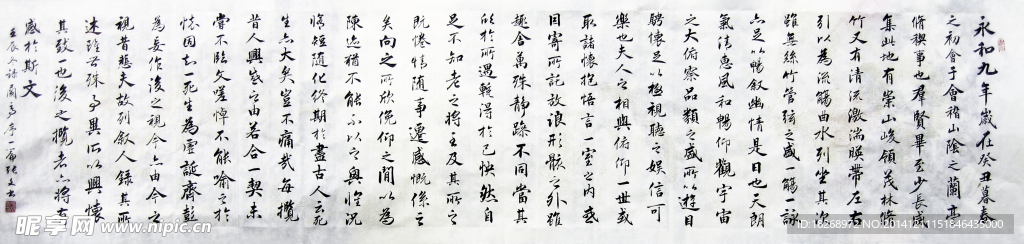 永和九年歲在癸丑暮春
之初會于會稽山陰之蘭亭
脩稧事也群賢畢至少長咸
集此地有崇山峻領茂林脩
竹又有清流激湍暎帶左右
引以為流觴曲水列坐其次
雖無絲竹管弦之盛一觴一詠
亦足以暢叙幽情是日也天朗
氣清惠風和暢仰觀宇宙
之大俯察品類之盛所以遊目
騁懷足以極視聽之娛信可
樂也夫人之相與俯仰一世或
取諸懷抱悟言一室之內或
因寄所託放浪形骸之外雖
趣舍萬殊靜躁不同當其
欣於所遇輙得於己怏然自
足不知老之將至及其所之
既惓情隨事遷感慨係之
矣向之所欣俛仰之閒以為
陳迹猶不能不以之興懷況
脩短隨化終期於盡古人云死
生亦大矣豈不痛哉每攬
昔人興感之由若合一契未
嘗不臨文嗟悼不能喻之於
懷固知一死生為虛誕齊彭
殤為妄作後之視今亦由今之
視昔悲夫故列叙人錄其所
述雖世殊事異所以興懷
其致一也後之攬者亦將有
感於斯文
昵享网 www.nipic.cn
昵图网 www.nipic.com